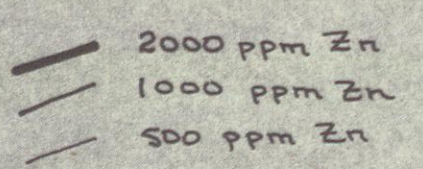 2000 ppm Zn
1000 ppm Zn
500 ppm Zn